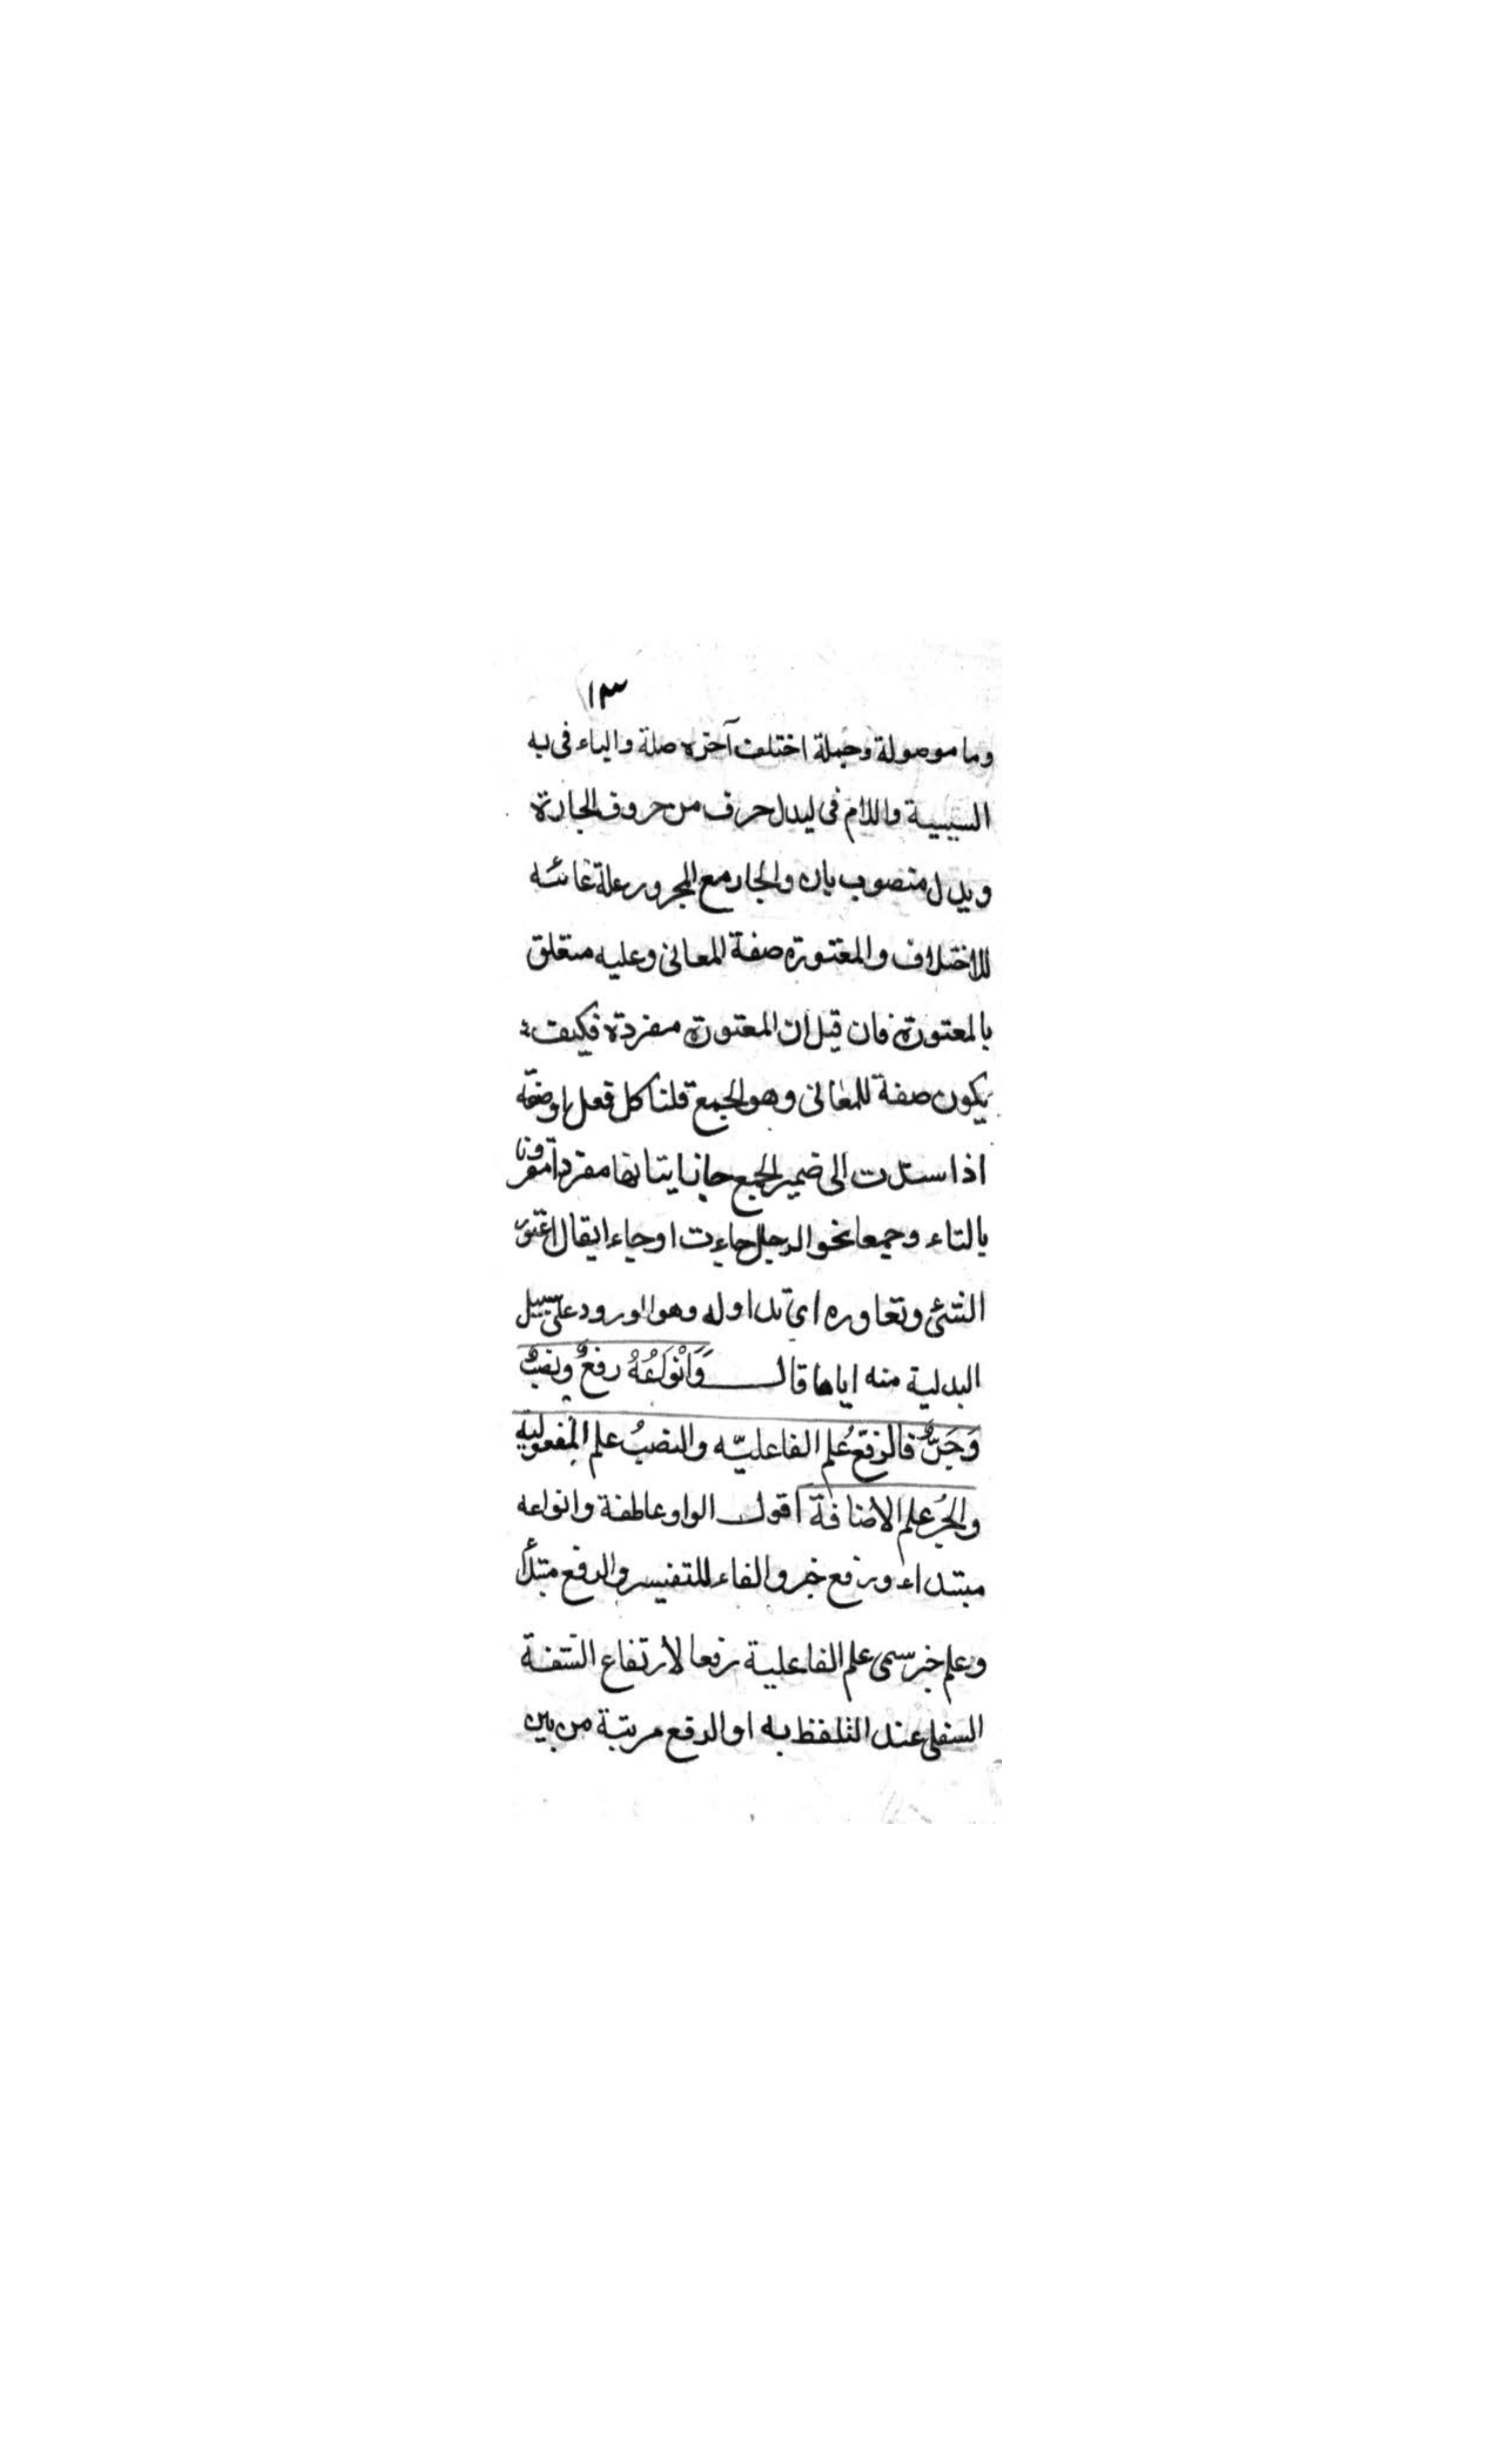 ١٣
وما موصولة وجملة اختلف آخره صلة والباء فى به
السببية واللام فى ليدل حرف من حروف الجارة
ويدل منصوب بان والجار مع المجرور علة غائيه
للاختلاف والمعتورة صفة المعانى وعليه متعلق
بالمعتورة فان قيل ان المعتورة مفردة فكيف
يكون صفة للمعانى وهو الجمع قلنا كل فعل او صفة
اذا سندت الى ضمير الجمع جاز ايتانها مفردا مقرونا
بالتاء وجمعا نحو الرجال جاءت او جاءا يقال اعتور
الشئ وتعاوره اى تداوله وهو الورود على سبيل
البدلية منه اياها قال وَاَنْوَاعُهُ رفعٌ ونصبٌ
وَجَرٌّ فالرفعُ علم الفاعليّه والنصبُ علم المفعوليه
والجرُ علم الاضافة اقول الواو عاطفة وانواعه
مبتداء ورفع خبر والفاء للتفيسر والرفع مبتدأ
وعلم خبر سمى علم الفاعلية رفعا لارتفاع الشفة
السفلى عند التلفظ به او الرفع مرتبة من بين